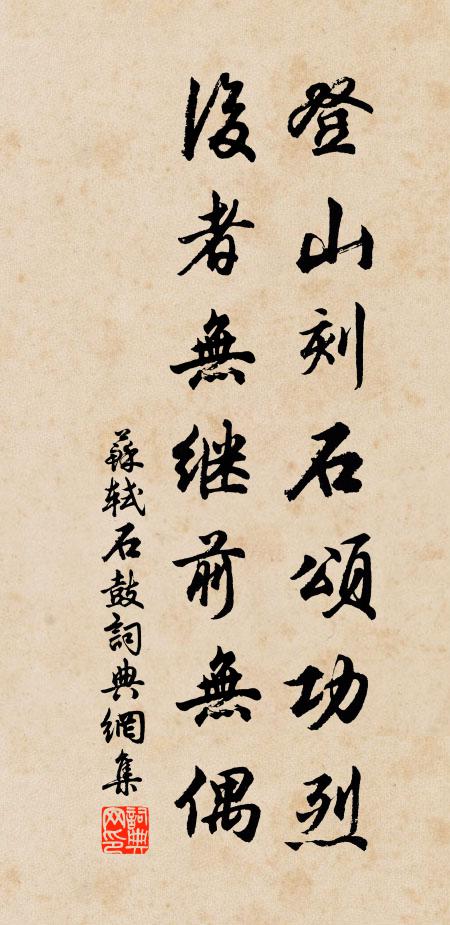 登山刻石頌功烈
後者無继前無偶
蘇軾石鼓詞典網集
詞典网印